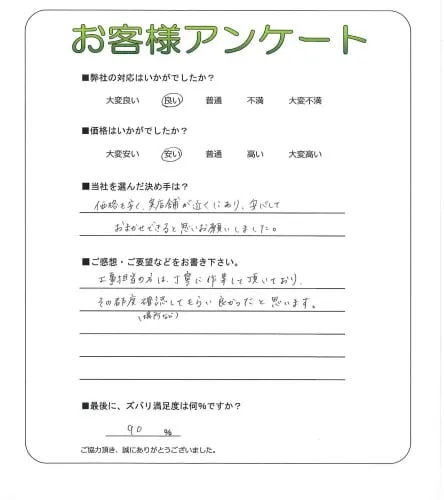 お客様アンケート
■弊社の対応はいかがでしたか？
大変良い 良い 普通 不満 大変不満
■価格はいかがでしたか？
大変安い 安い 普通 高い 大変高い
■当社を選んだ決め手は？
価格も安く、実店舗が近くにあり、安心して
おまかせできると思いお願いしました。
■ご感想・ご要望などをお書き下さい。
工事担当の方は、丁寧に作業して頂いており、
その都度確認してもらい良かったと思います。
(場所など)
■最後に、ズバリ満足度は何%ですか？
90 %
ご協力頂き、誠にありがとうございました。